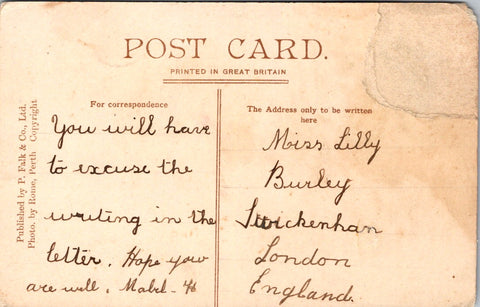 POST CARD.
PRINTED IN GREAT BRITAIN
For correspondence
You will have
to excuse the
writing in the
letter. Hope your
are well. Mabel.
The Address only to be written
here
Miss Lilly
Burley
Twickenham
London
England.
Published by P. Falk & Co., Ltd.
Photo. by Rome, Perth Copyright